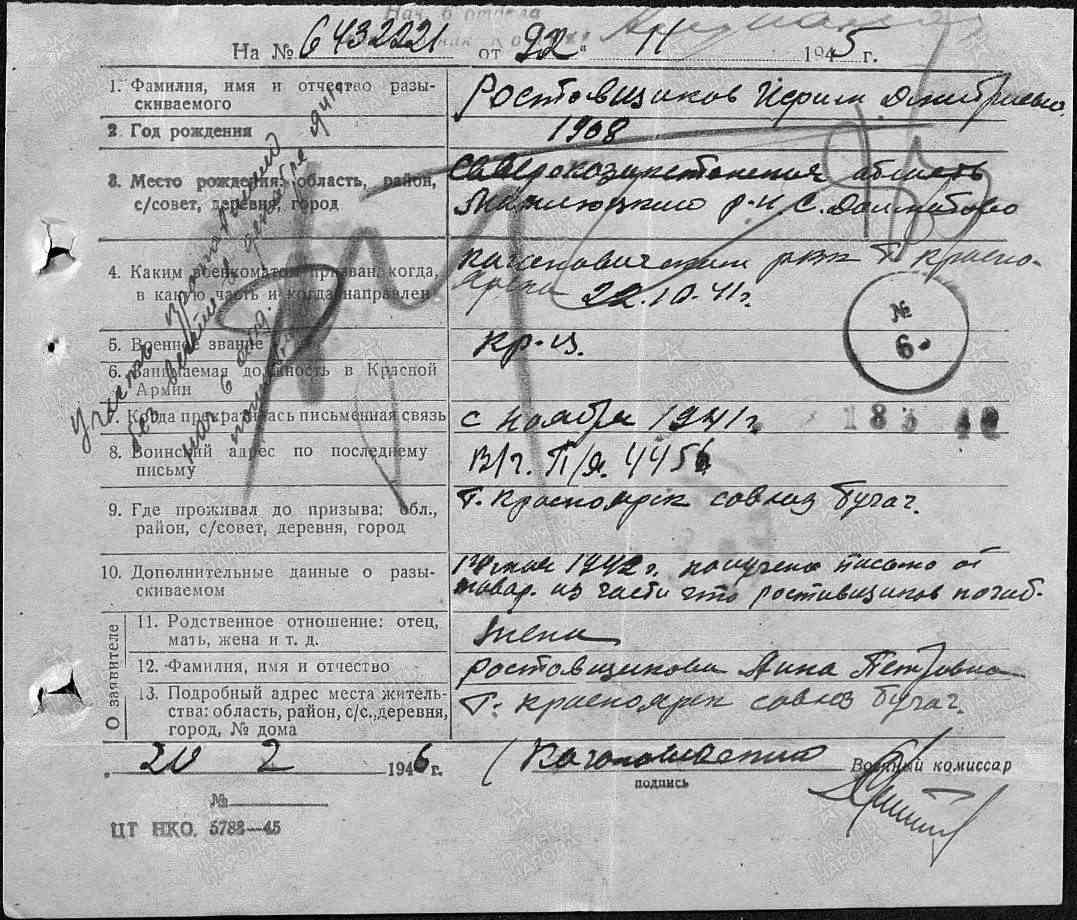 На № 6432221 от "22" 11 1945 г.
1. Фамилия, имя и отчество разы-
скиваемого
Ростовщиков Дмитриевич
2. Год рождения
1908
3. Место рождения: область, район,
с/совет, деревня, город
Северокозахстонския область
р-н С.
4. Каким военкоматом призван, когда,
в какую часть и когда направлен
Кагановическим рвк г. Красно-
ярска 22.10.41г.
5. Военное звание
кр-ц.
6. Занимаемая должность в Красной
Армии
7. Когда прекратилась письменная связь
с ноября 1941г.
183 40
8. Воинский адрес по последнему
письму
В/ч. П/я. 4456
9. Где проживал до призыва: обл.,
район, с/совет, деревня, город
г. Красноярск совхоз Бугач.
10. Дополнительные данные о разы-
скиваемом
мая 1942г. получено письмо от
товар. из части что ростовщиков погиб.
О заявителе
11. Родственное отношение: отец,
мать, жена и т. д.
жена
12. Фамилия, имя и отчество
Ростовщикова Анна Петровна
13. Подробный адрес места житель-
ства: область, район, с/с., деревня,
город, № дома
г. Красноярск совхоз Бугач.
№
6.
20 2 1946 г.
Военный комиссар
подпись
№
ЦТ НКО. 5788—45